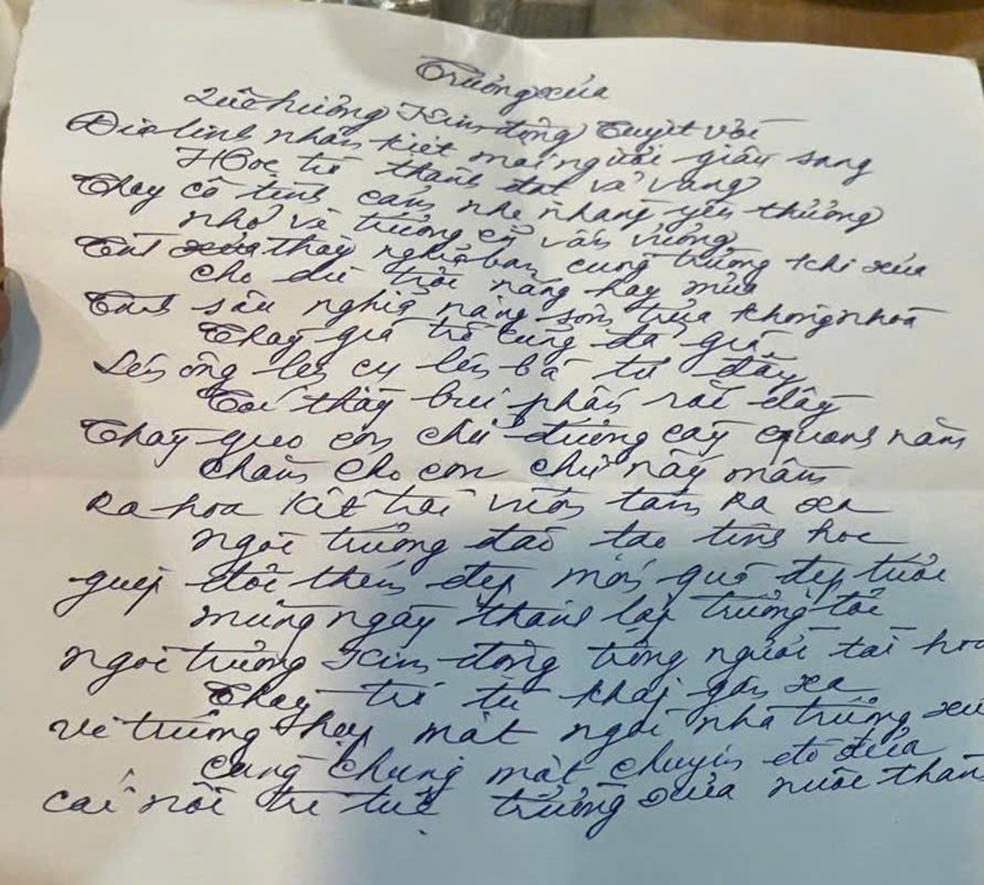 Trường xưa
Quê hương Kim động tuyệt vời
Địa linh nhân kiệt mọi người giầu sang
Học trò thành đạt vẻ vang
Thầy cô tình cảm nhẹ nhàng yêu thương
nhớ về trường cũ vấn vương
Tình thày nghĩa bạn cùng trường khi xưa
cho dù trời nắng hay mưa
Tình sâu nghĩa nặng sớm trưa không nhoà
Thày giờ trò cũng đã già
Lên ông lên cụ lên bà từ đây
Tóc thầy bụi phấn rơi đầy
Thày gieo con chữ đường cày quanh năm
chăm cho con chữ nảy mầm
Ra hoa kết trái vươn tầm Ra xa
ngôi trường đào tạo tinh hoa
giúp đời thêm đẹp món quà đẹp tươi
mừng ngày thành lập trường tôi
ngôi trường Kim động trồng người tài hoa
Thày trò từ khắp gần xa
về trường họp mặt ngôi nhà trường xưa
cùng chung một chuyến đò đưa
cái nôi trí tuệ trường xưa nuôi thàn